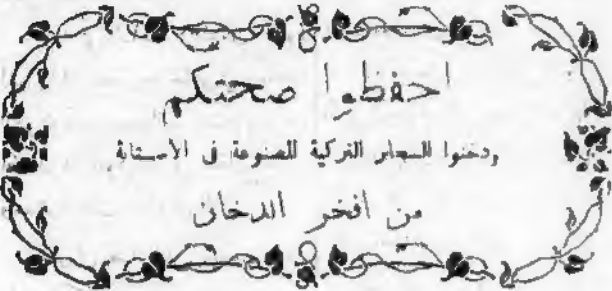 احفظوا صحتكم
ودخنوا السجاير التركية المصنوعة في الأستانة
من أفخر الدخان